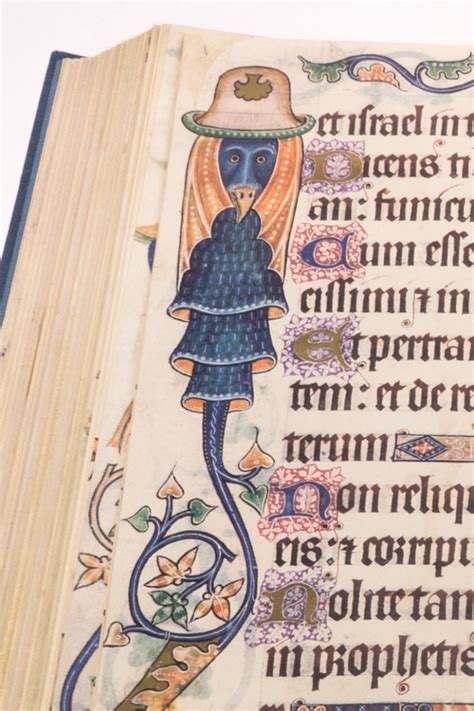 et israel in t
Dicens ti
an: funicu
Cum esse
cissimi ⁊ in
Et pertran
tem: et de re
terum
Non reliq
eis: ⁊ corripi
Nolite tan
in prophetis